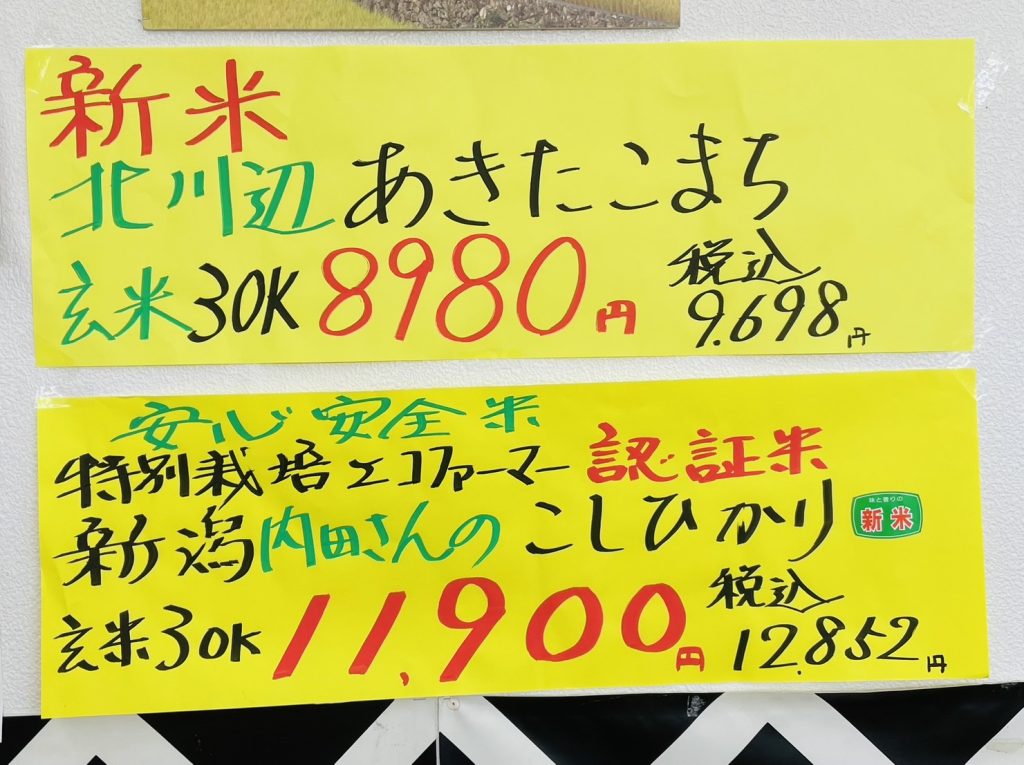 新米
北川辺 あきたこまち
玄米30K 8980円 税込
9.698円
安心安全米
特別栽培エコファーマー 認証米
新潟内田さんの こしひかり
味と香りの
新米
玄米30K 11,900円 税込
12.852円